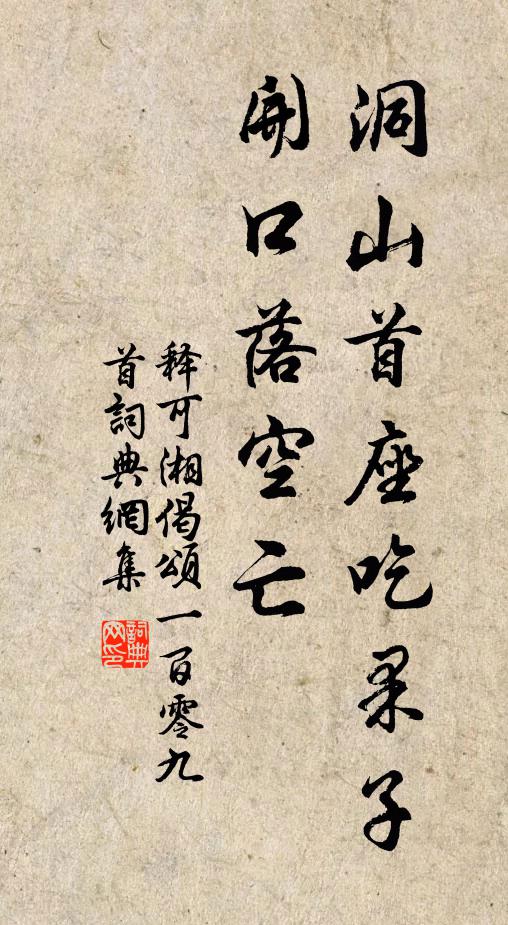 洞山首座吃果子
開口落空亡
释可湘偈頌一百零九
首詞典網集
詞典
网印